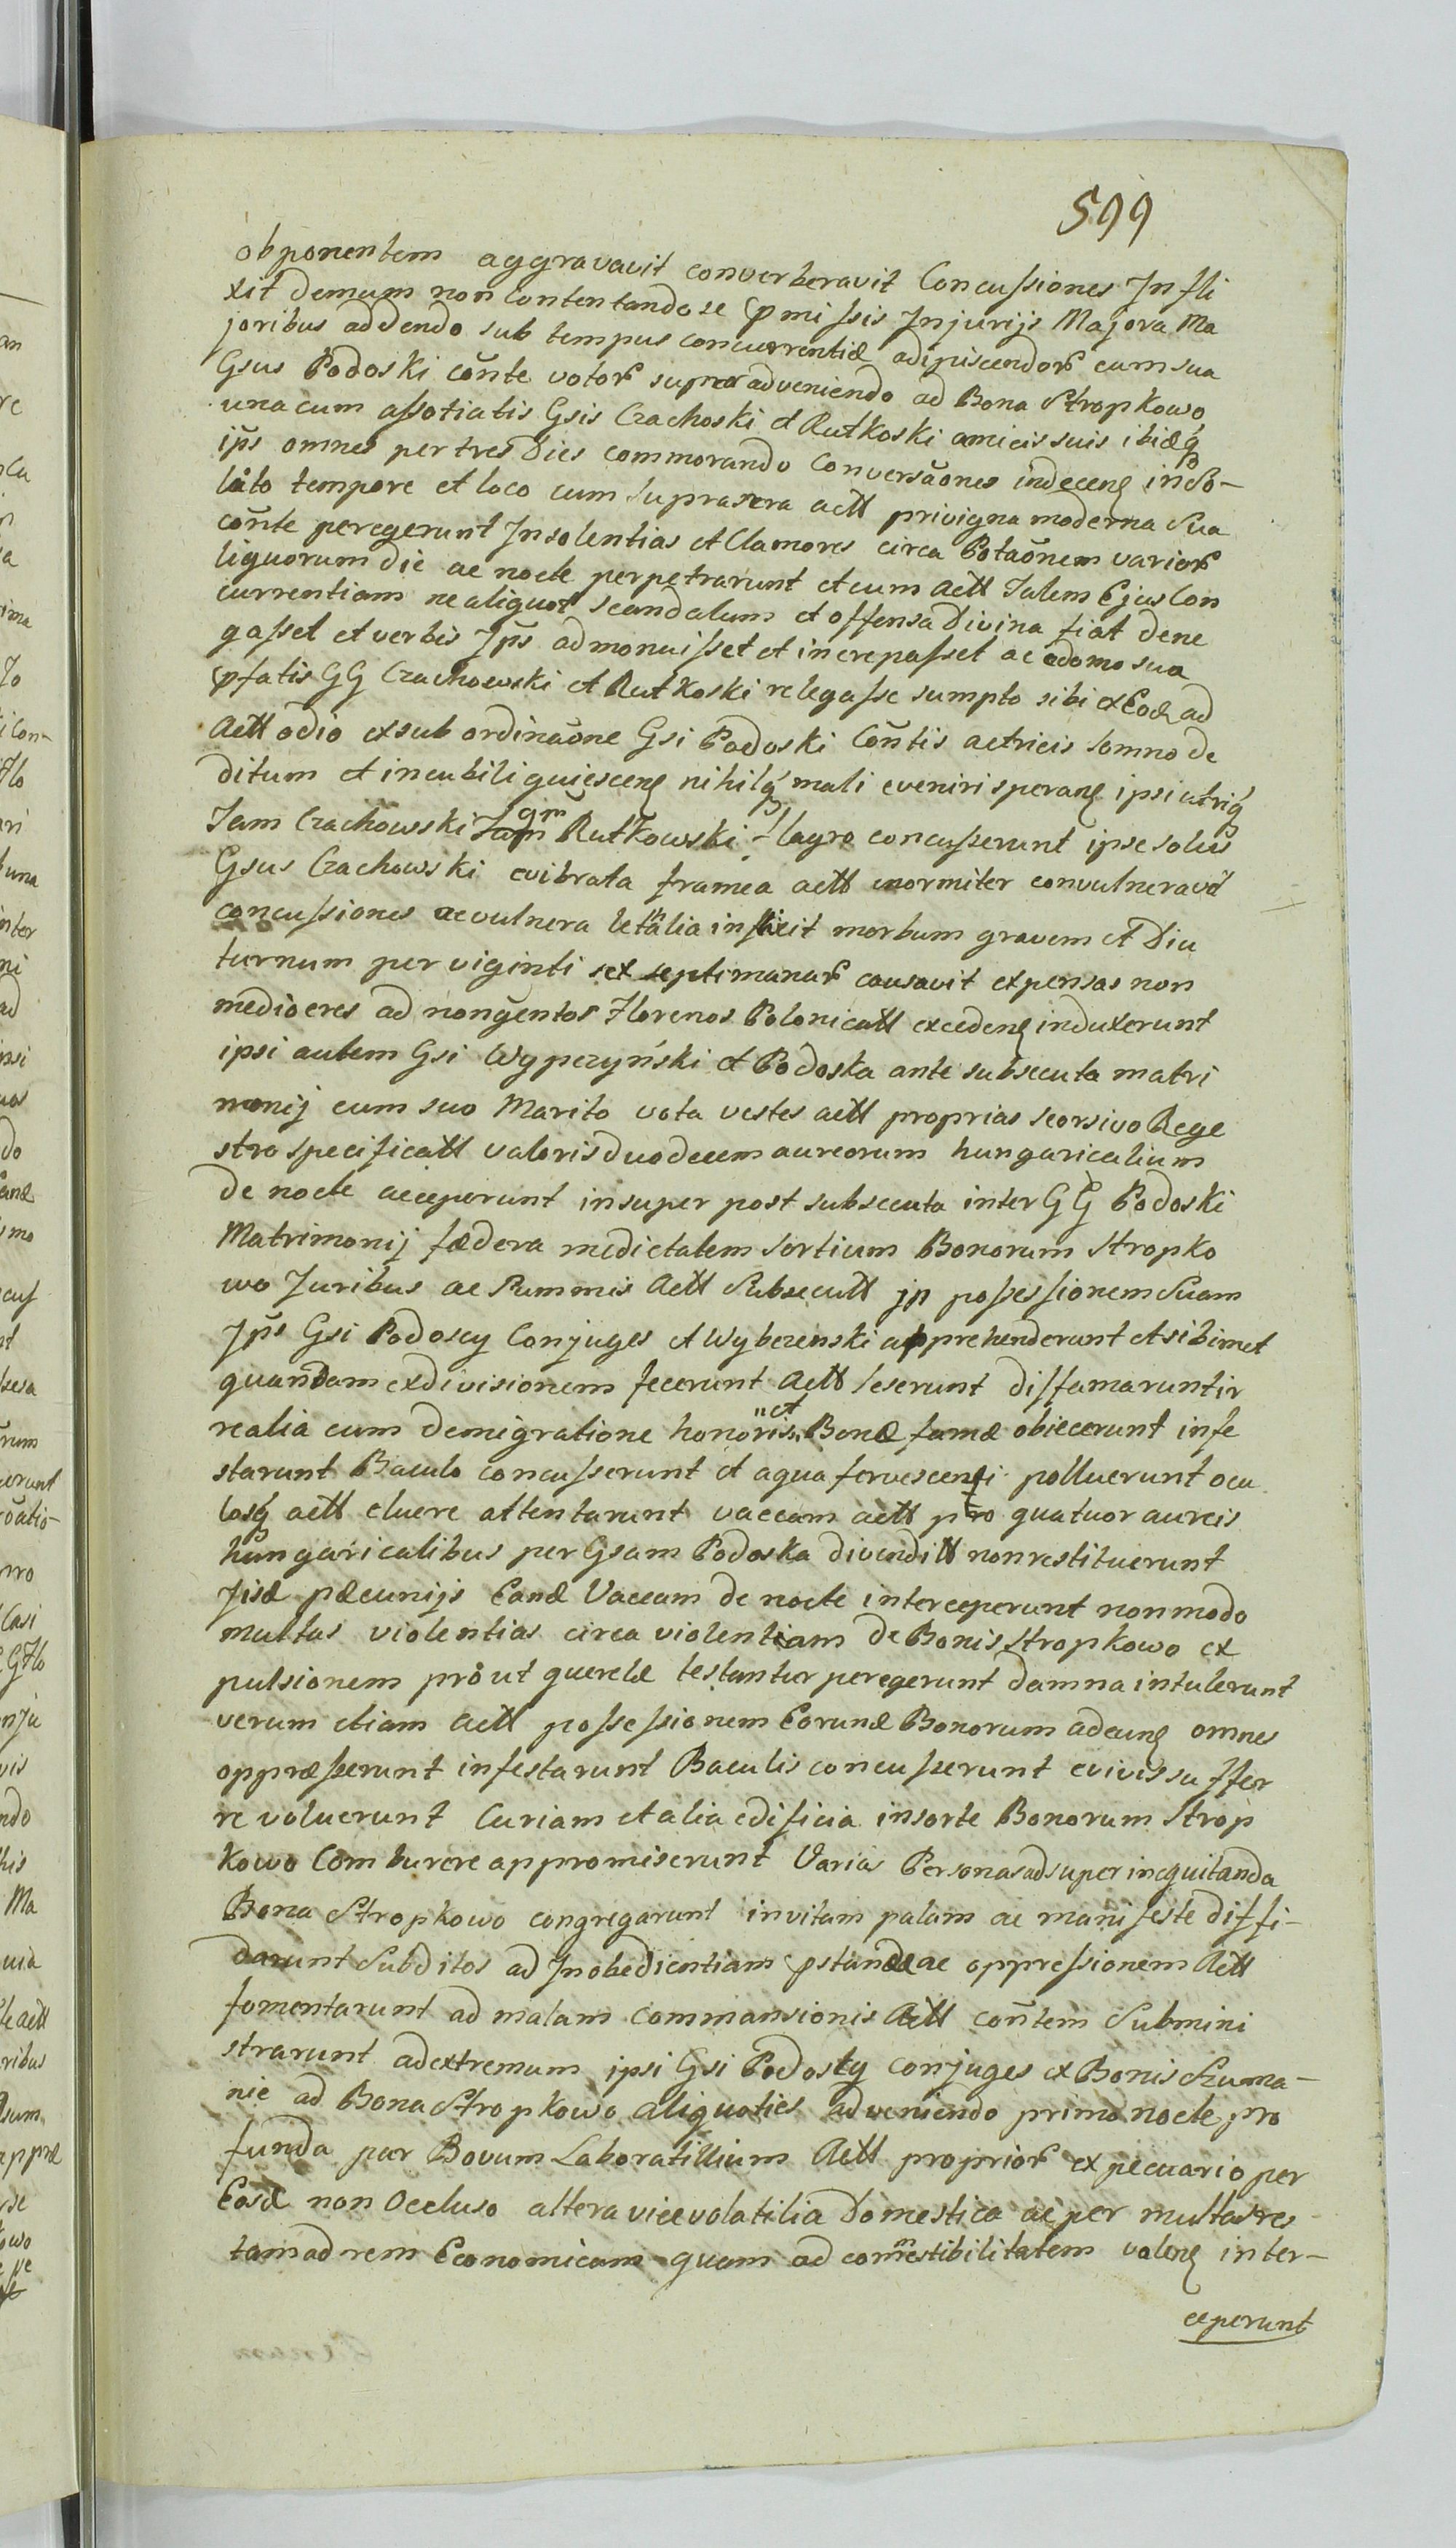 599
obponentem aggravavit converberavit Concussiones Infli
xit demum non Contentando se pmissis Injurijs Majora Ma
joribus addendo sub tempus concurrentiæ adipiscendor eum sua
Gsus Podoski cõnte votor supra adveniendo ad Bona Stropkowo
una cum assotiatis Gsis Czachoski et Rutkoski amicis suis ibidẽ
ip̃s omnes per tres Dies commorando Conversaõnes indecen
tempore et loco cum supra aett privigna moderna Sua
cõnte peregerunt Insolentias et Clamores circa Potaõnem varior
liquorum die ac nocte perpetrarunt et cum aett Talem Ejus Con
currentiam ne aliquot scandalum et offensa Divina fiat dene
gasset et verbis Ip̃s admonuisset et increpasset ac e domo sua
pfatis GG Czachowski et Rutkoski relegasse sumpto sibi ex Eod ad
Aett odio ex sub ordinaõne Gsi Podoski Cõntis actricis somno de
ditum et in cubili quiescen nihilq mali eveniri speran ipsi utriq
Tam Czachowski qm Rutkowski flagro concusserunt ipse solus
Gsus Czachowski evibrata framea aett enormiter convulneravit
concussiones ac vulnera lethalia inflixit morbum gravem et Diu
turnum per viginti sex septimanar causavit expensas non
mediocres ad nongentos Florenos Polonicatt exceden induxerunt
ipsi autem Gsi Wypczyński et Podoska ante subsecuta matri
monij cum suo Marito vota vestes aett proprias seorsivo Rege
stro specificatt valoris duodecem aureorum hungaricalium
de nocte acceperunt insuper post subsecuta inter GG Podoski
Matrimonij fædera medietatem Sortium Bonorum Stropko
wo Juribus ac Summis Aett Subsecutt jn possessionem Suam
Jp̃s Gsi Podoscy Conjuges et Wybczenski apprehenderunt et sibimet
quandam exdivisionem fecerunt Aett leserunt diffamarunt ir
realia cum demigratione honoris et Bonæ famæ obiecerunt infe
starunt Baculo concusserunt et aqua fervescenti polluerunt ocu
losq aett eluere attentarunt vaccam aett pro quatuor aureis
hungaricalibus per Gsam Podoska divenditt non restituerunt
Jisd pæcunijs Eand Vaccam de nocte interceperunt non modo
multas violentias circa violentiam de Bonis Stropkowo ex
pulsionem proùt querelæ testantur peregerunt damna intulerunt
verum etiam Aett possessionem Eorund Bonorum adeun omnes
oppræsserunt infestarunt Baculis concusserunt e vivis suffer
re voluerunt Curiam et alia edificia in sorte Bonorum Strop
kowo Comburere appromiserunt Varias Personas ad super inequitanda
Bona Stropkowo congregarunt invitam palam ac manifeste diffi-
darunt Subditos ad Inobedientiam pstand ac oppressionem Aett
fomentarunt ad malam commansionis Aett cõntem Submini
strarunt ad extremum ipsi Gsi Podoscy conjuges ex Bonis Szuma-
nie ad Bona Stropkowo aliquoties adveniendo primo nocte pro
funda par Bovum Laboratilium Aett proprior ex pecuario per
Eosd non Occluso altera vice volatilia Domestica ac per multas res
tam ad rem Economicam quam ad commestibilitatem valen inter-
ceperunt